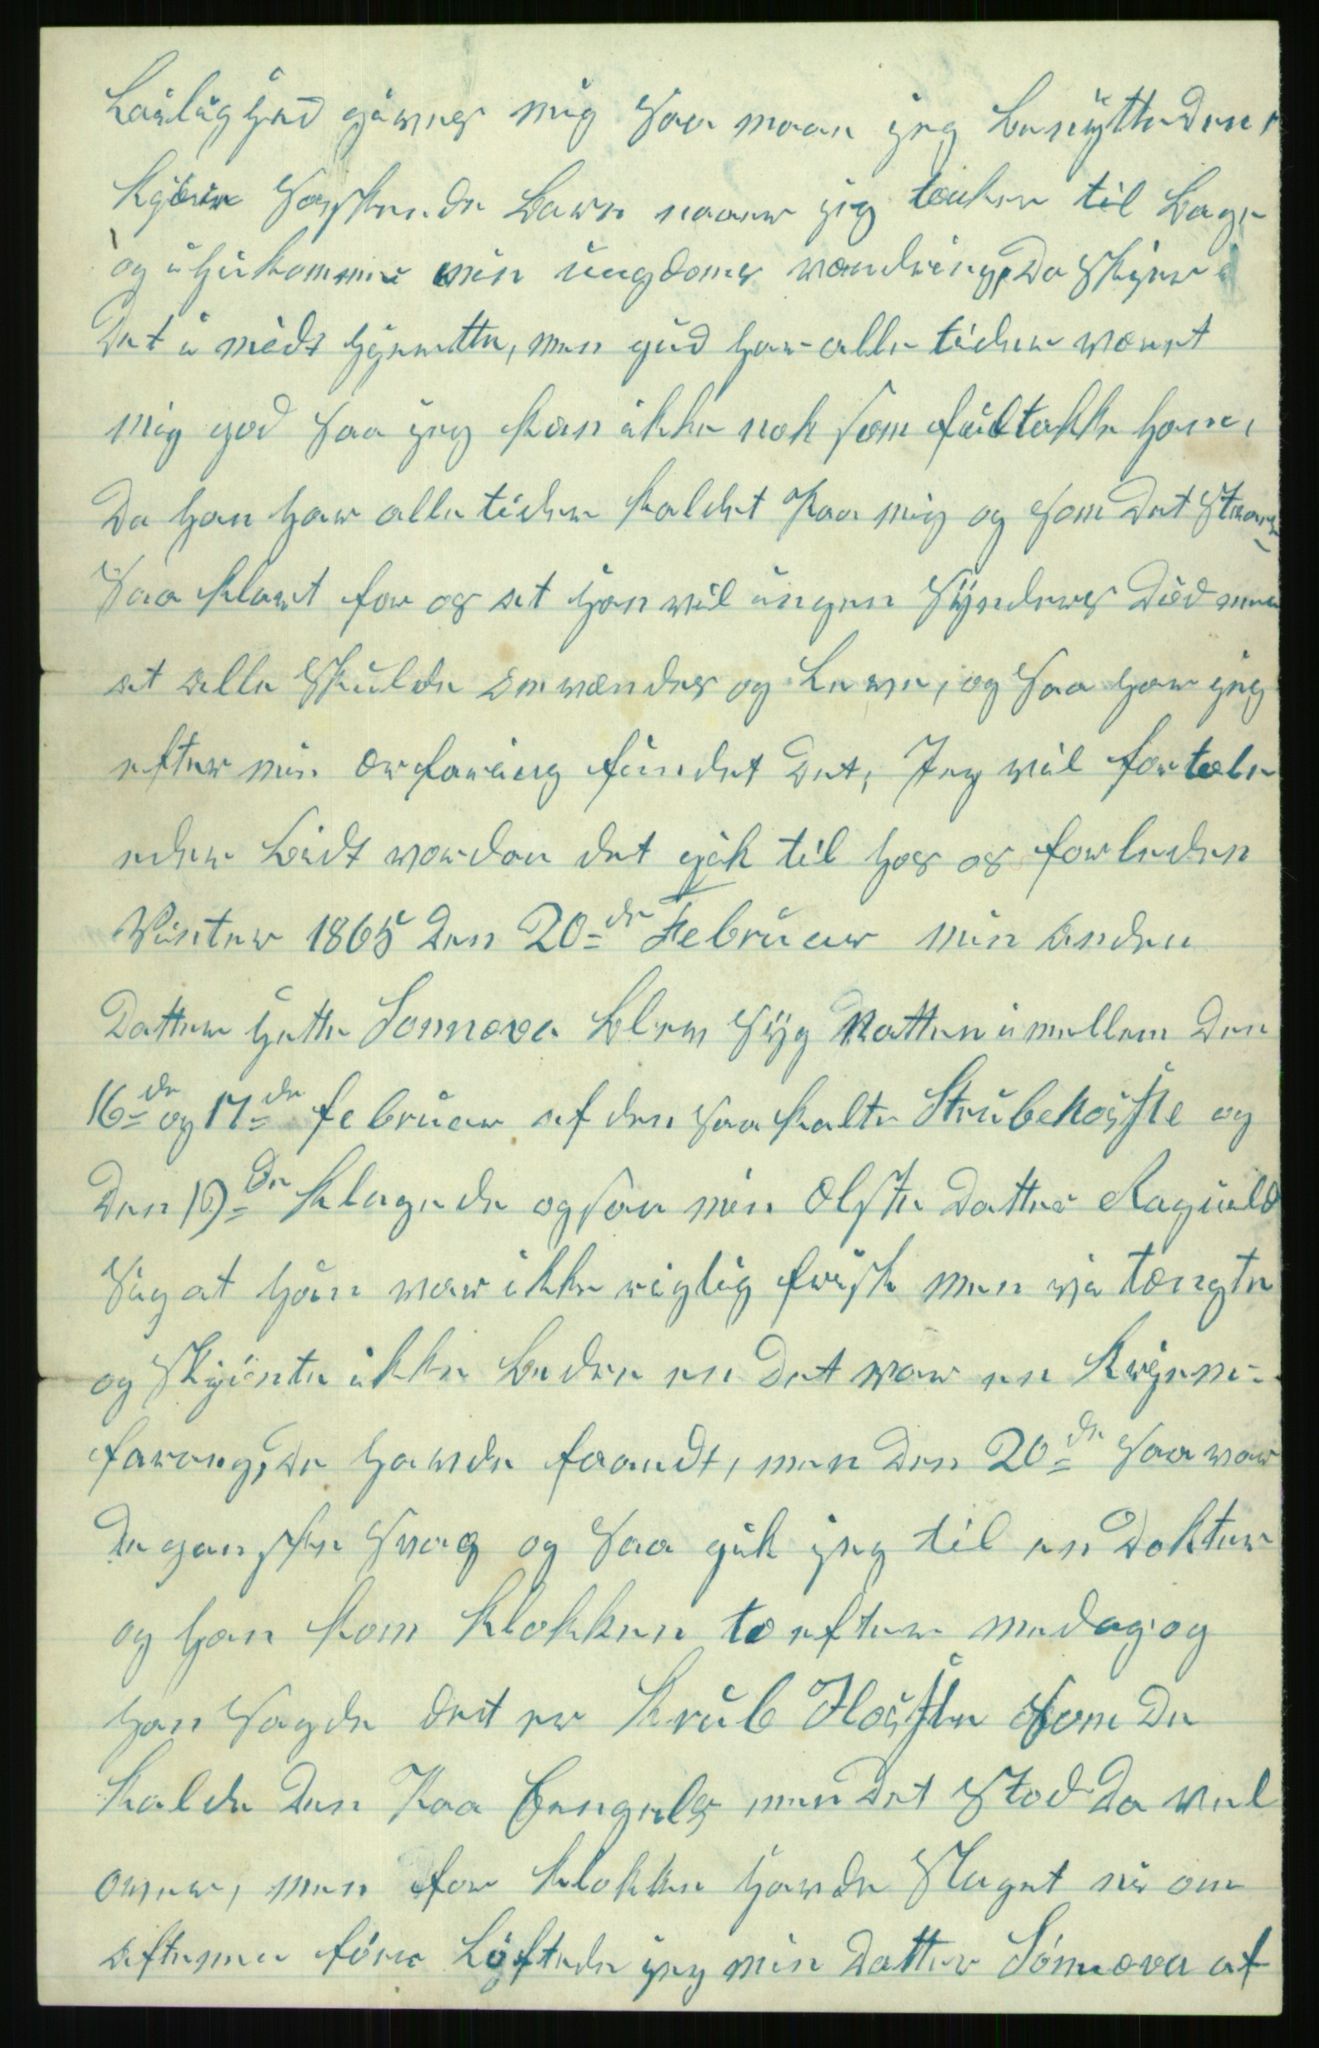 Leilighed gives mig saa maa jeg benytte den,
Kjere Søskende Barn naar jeg tænker til bage
og ihukomme min ungdoms vandring, Da skjer
Det i midt hjertte, men gud har alle tider været
mig god saa jeg kan ikke nok som fuldtakke ham,
Da han har alle tider kaldet paa mig og som Det staar
Saa klart for os at han vil ingen Synderes Död men
at alle skulde omvendes og Leve, og saa har jeg
efter min ærfaring fundet Det, Jeg vil fortæle
eder Lidt vordan det gik til hos os forleden
Vinter 1865 Den 20de Februar min anden
Datter hette Sonnova blev Syg Natten imellem Den
16de og 17de februar af den saa kalte Strubehoste og
Den 19de klagede ogsaa min Elste Datter Ragnild
Sig at hun var ikke rigtig frisk men vi tængte
og skjönte ikke bedre en Det var en kvjem-
faring, De havde faaedt, men Den 20de saa var
De ganske Svag og saa gik jeg til en Doktor
og han kom klokken to efter medag og
han sagde det er Krub Hoste som De
kalde Den paa Engels men Det Stod Da vel
over, men for klokken havde Slaget ni om
aftenen före Löftede jeg min Datter Sönnova af